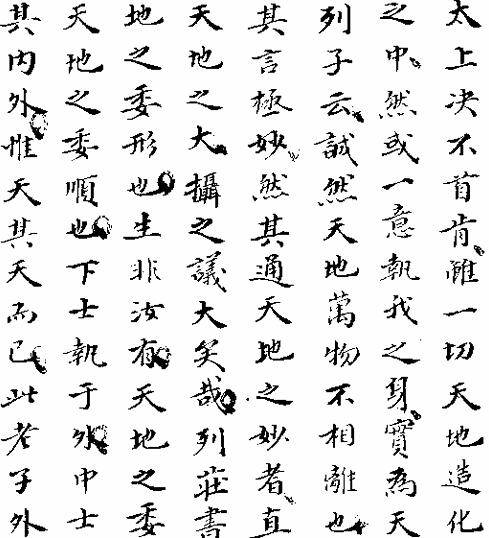 太上决不首肯離一切天地造化
之中然或一意執我之身實為天
列子云誠然天地萬物不相離也
其言極妙然其通天地之妙者直
天地之大攝之議大矣哉列莊書
地之委形也生非汝有天地之委
天地之委順也下士執于外中士
其内外惟天其天而已此老子外